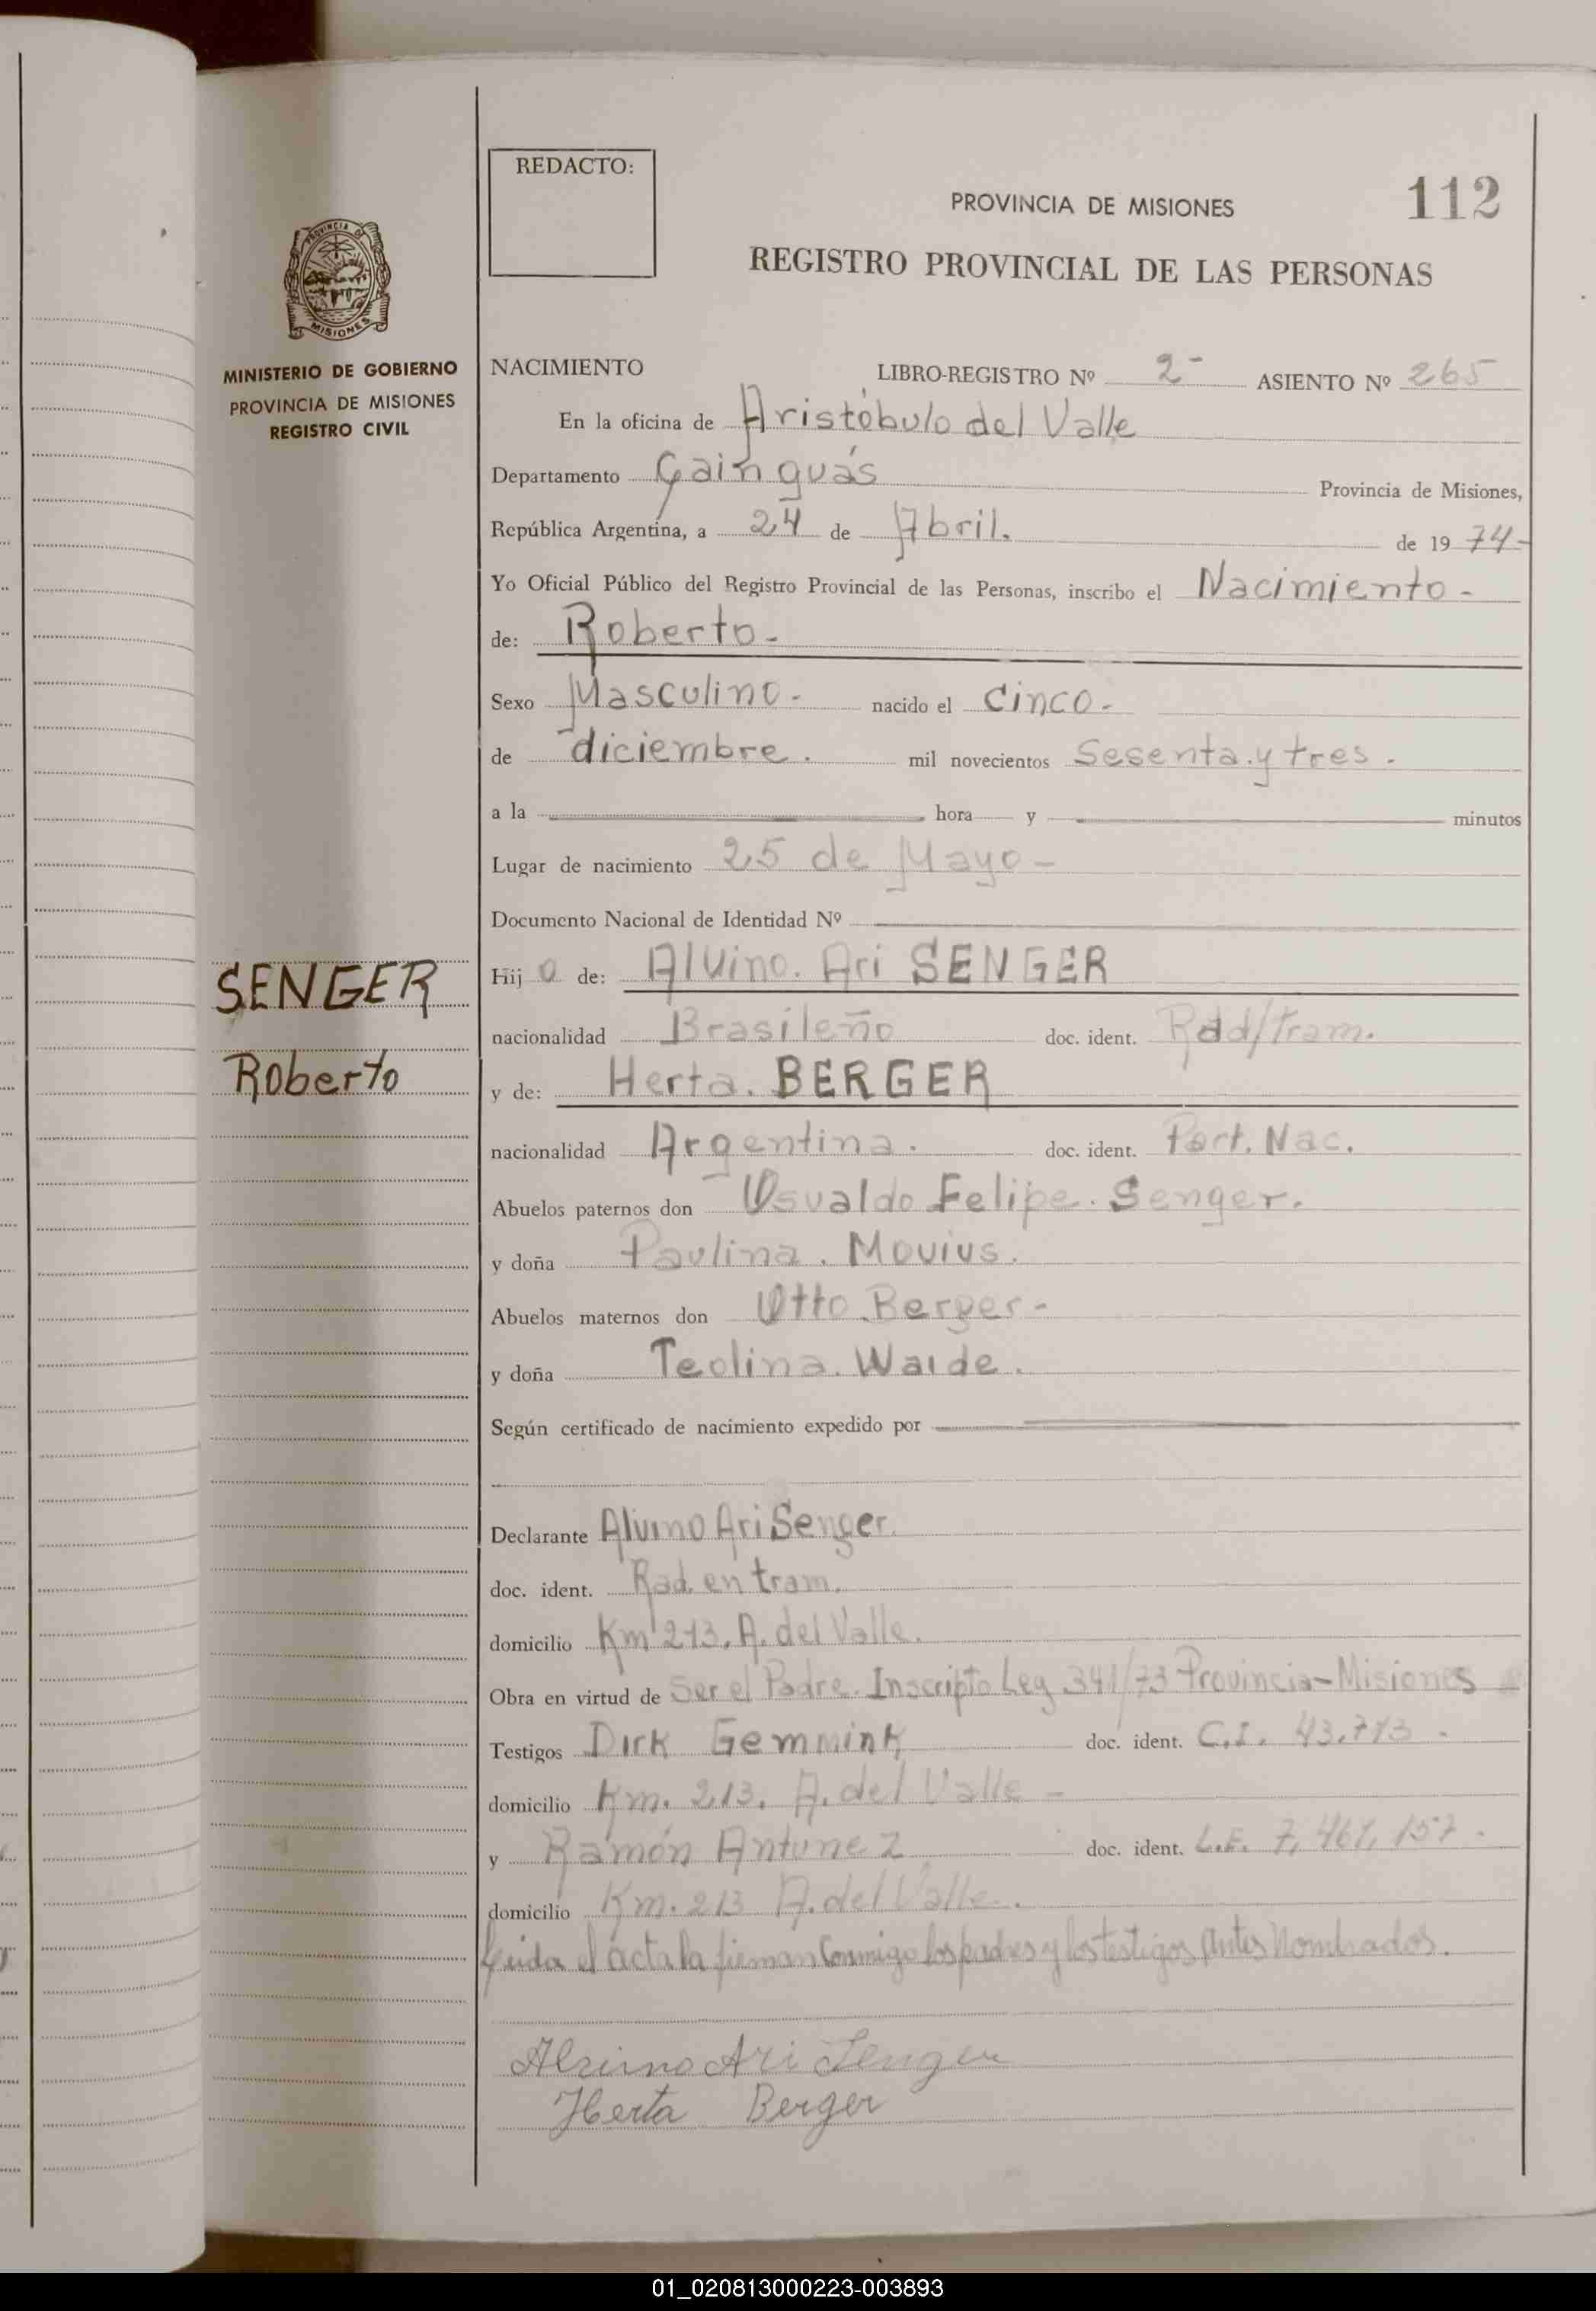 REDACTO:
PROVINCIA DE MISIONES
112
REGISTRO PROVINCIAL DE LAS PERSONAS
PROVINCIA DE
MISIONES
MINISTERIO DE GOBIERNO
PROVINCIA DE MISIONES
REGISTRO CIVIL
SENGER
Roberto
NACIMIENTO LIBRO-REGISTRO Nº 2- ASIENTO Nº 265
En la oficina de Aristóbulo del Valle
Departamento Cainguás Provincia de Misiones,
República Argentina, a 24 de Abril. de 19 74-
Yo Oficial Público del Registro Provincial de las Personas, inscribo el Nacimiento -
de: Roberto-
Sexo Masculino- nacido el Cinco-
de diciembre. mil novecientos Sesenta.y tres.
a la hora y minutos
Lugar de nacimiento 25 de Mayo-
Documento Nacional de Identidad Nº
Hij o de: Alvino. Ari SENGER
nacionalidad Brasileño doc. ident. Rdd/tram.
y de: Herta. BERGER
nacionalidad Argentina. doc. ident. Part. Nac.
Abuelos paternos don Osvaldo Felipe. Senger.
y doña Paulina. Movius.
Abuelos maternos don Otto Berger-
y doña Teolina. Waide.
Según certificado de nacimiento expedido por
Declarante Alvino Ari Senger.
doc. ident. Rad. en tram.
domicilio Km 213. A. del Valle.
Obra en virtud de Ser el Padre. Inscripto Ley 341/73 Provincia-Misiones
Testigos Dirk Gemmink doc. ident. C.I. 43.713.
domicilio Km. 213. A. del Valle-
y Ramón Antunez doc. ident. L.E. 7,461,157.
domicilio Km. 213 A. del Valle.
Leida el acta la firman Conmigo los padres y los testigos Antes Nombrados.
Alvino Ari Senger
Herta Berger
01_020813000223-003893